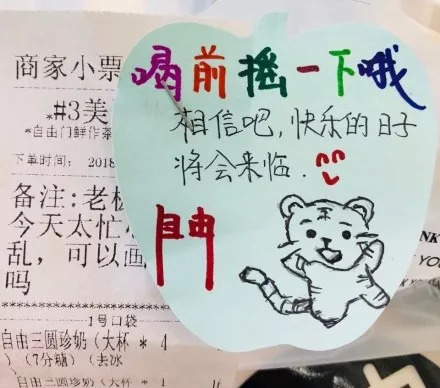 商家小票
*#3美
*自由门鲜作茶
下单时间: 2018
备注:老板
今天太忙
乱,可以画
吗
1号口袋
自由三圆珍奶(大杯 * 4
)(7分糖)(去冰
自由三圆珍奶(大杯 * 1
喝前摇一下哦
相信吧,快乐的日子
将会来临.
自由